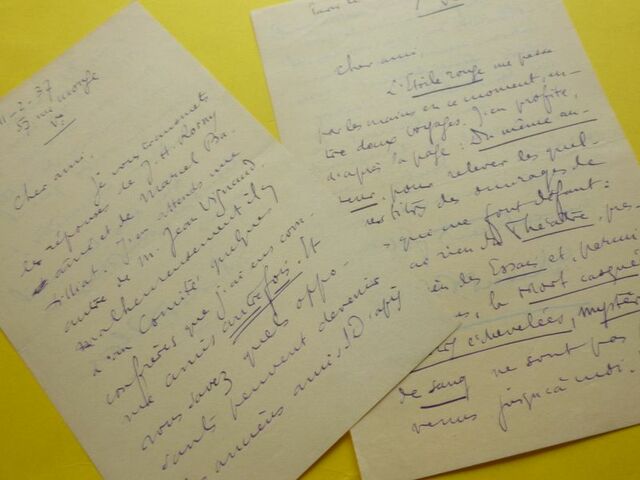 11-2-37
57 rue Monge
Vᵉ
Cher ami,
je vous transmets
les réponses de J.H. Rosny
aîné et de Marcel Ba-
tilliat. J'en attends une
autre de M. Jean Vignaud.
Malheureusement il y
a au Comité quelques
confrères que j'ai eus com-
me amis autrefois. Et
vous savez quels oppo-
sants peuvent devenir
anciens amis! D'après
Vᵉ
Cher ami,
L'Etoile rouge me passe
par les mains en ce moment, en-
tre deux voyages. J'en profite,
d'après la page: Du même au-
teur, pour relever les quel-
titres des ouvrages de
que me font défaut:
ai rien du Théâtre, pas
des Essais et, parmi
la Mort casquée
échevelées, mystè
de sang ne sont pas
venus jusqu'à moi.